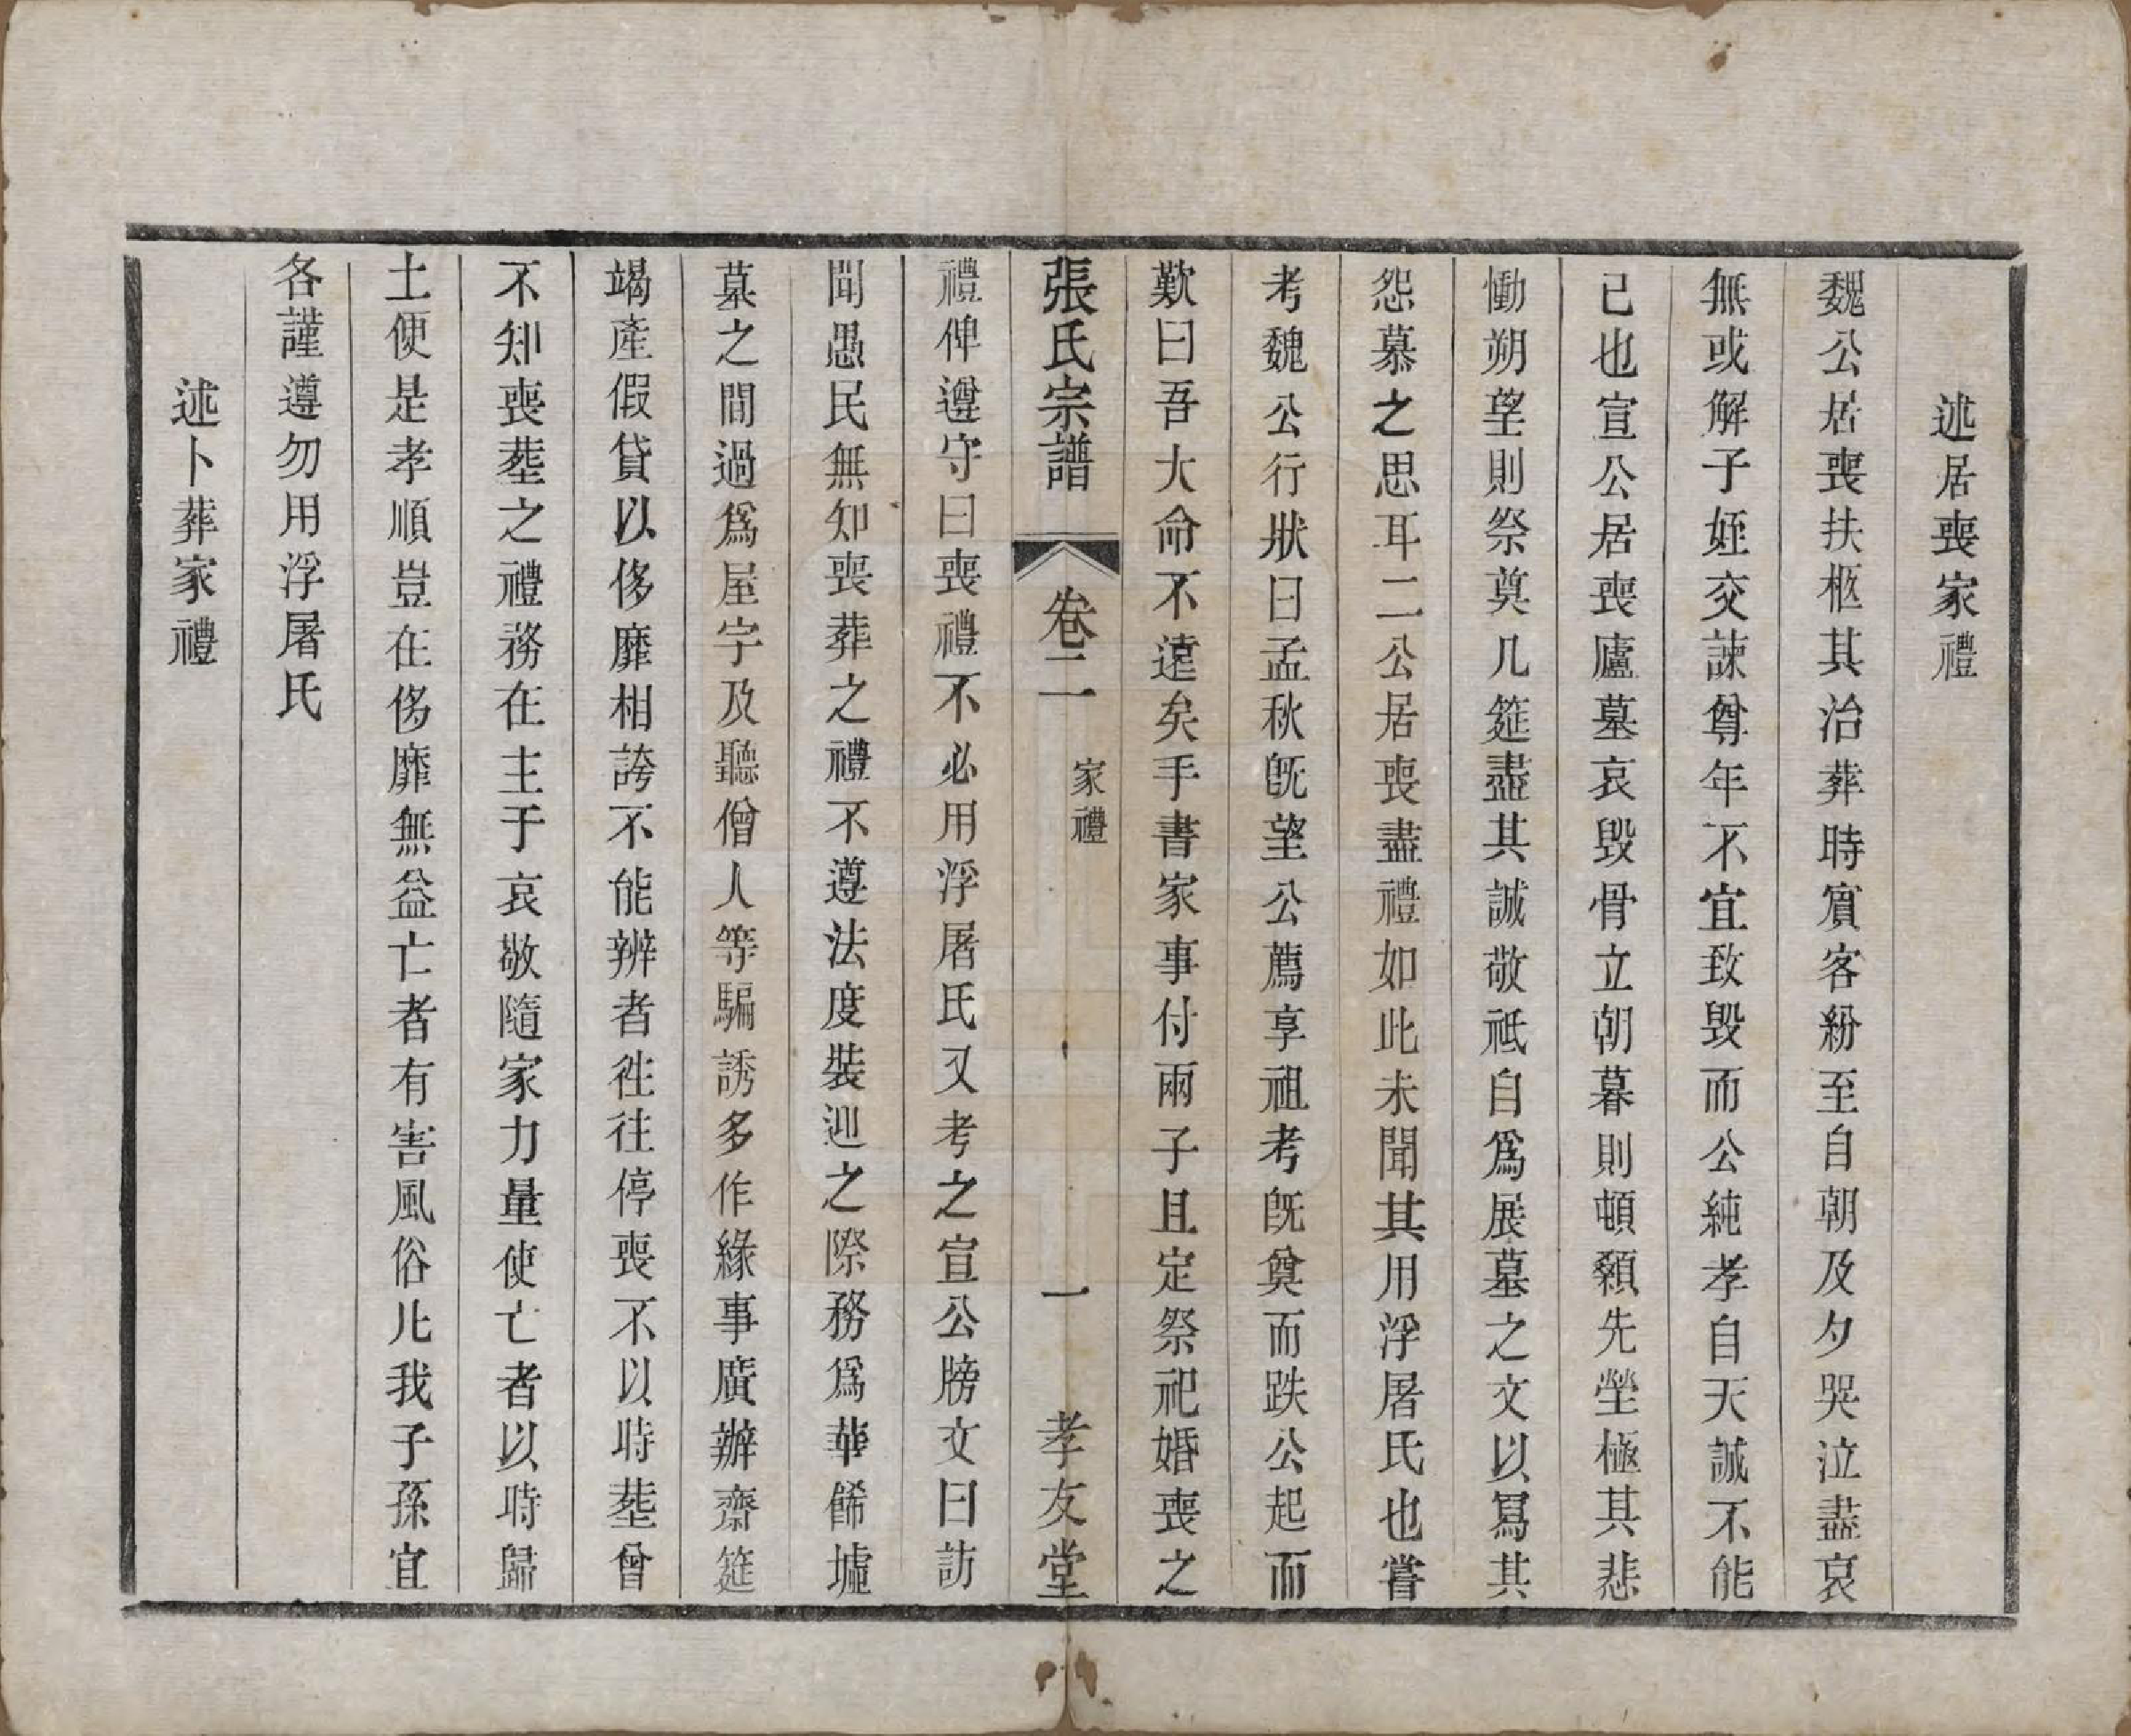 述居喪家禮
魏公居喪扶柩其治葬時賔客紛至自朝及夕哭泣盡哀
無或解子姪交諫尊年不宜致毁而公純孝自天誠不能
已也宣公居喪廬墓哀毁骨立朝暮則頓顙先塋極其悲
慟朔望則祭奠几筵盡其誠敬祗自爲展墓之文以寫其
怨慕之思耳二公居喪盡禮如此未聞其用浮屠氏也嘗
考魏公行狀曰孟秋旣望公薦享祖考旣奠而跌公起而
歎曰吾大命不遠矣手書家事付兩子且定祭祀婚喪之
張氏宗譜 卷二 家禮 一 孝友堂
禮俾遵守曰喪禮不必用浮屠氏又考之宣公牓文曰訪
聞愚民無知喪葬之禮不遵法度裝迎之際務爲華餙墟
墓之間過爲屋宇及聽僧人等騙誘多作緣事廣辦齋筵
竭產假貸以侈靡相誇不能辨者徃往停喪不以時塟曾
不知喪塟之禮務在主于哀敬隨家力量使亡者以時歸
土便是孝順豈在侈靡無益亡者有害風俗凡我子孫宜
各謹遵勿用浮屠氏
述卜葬家禮